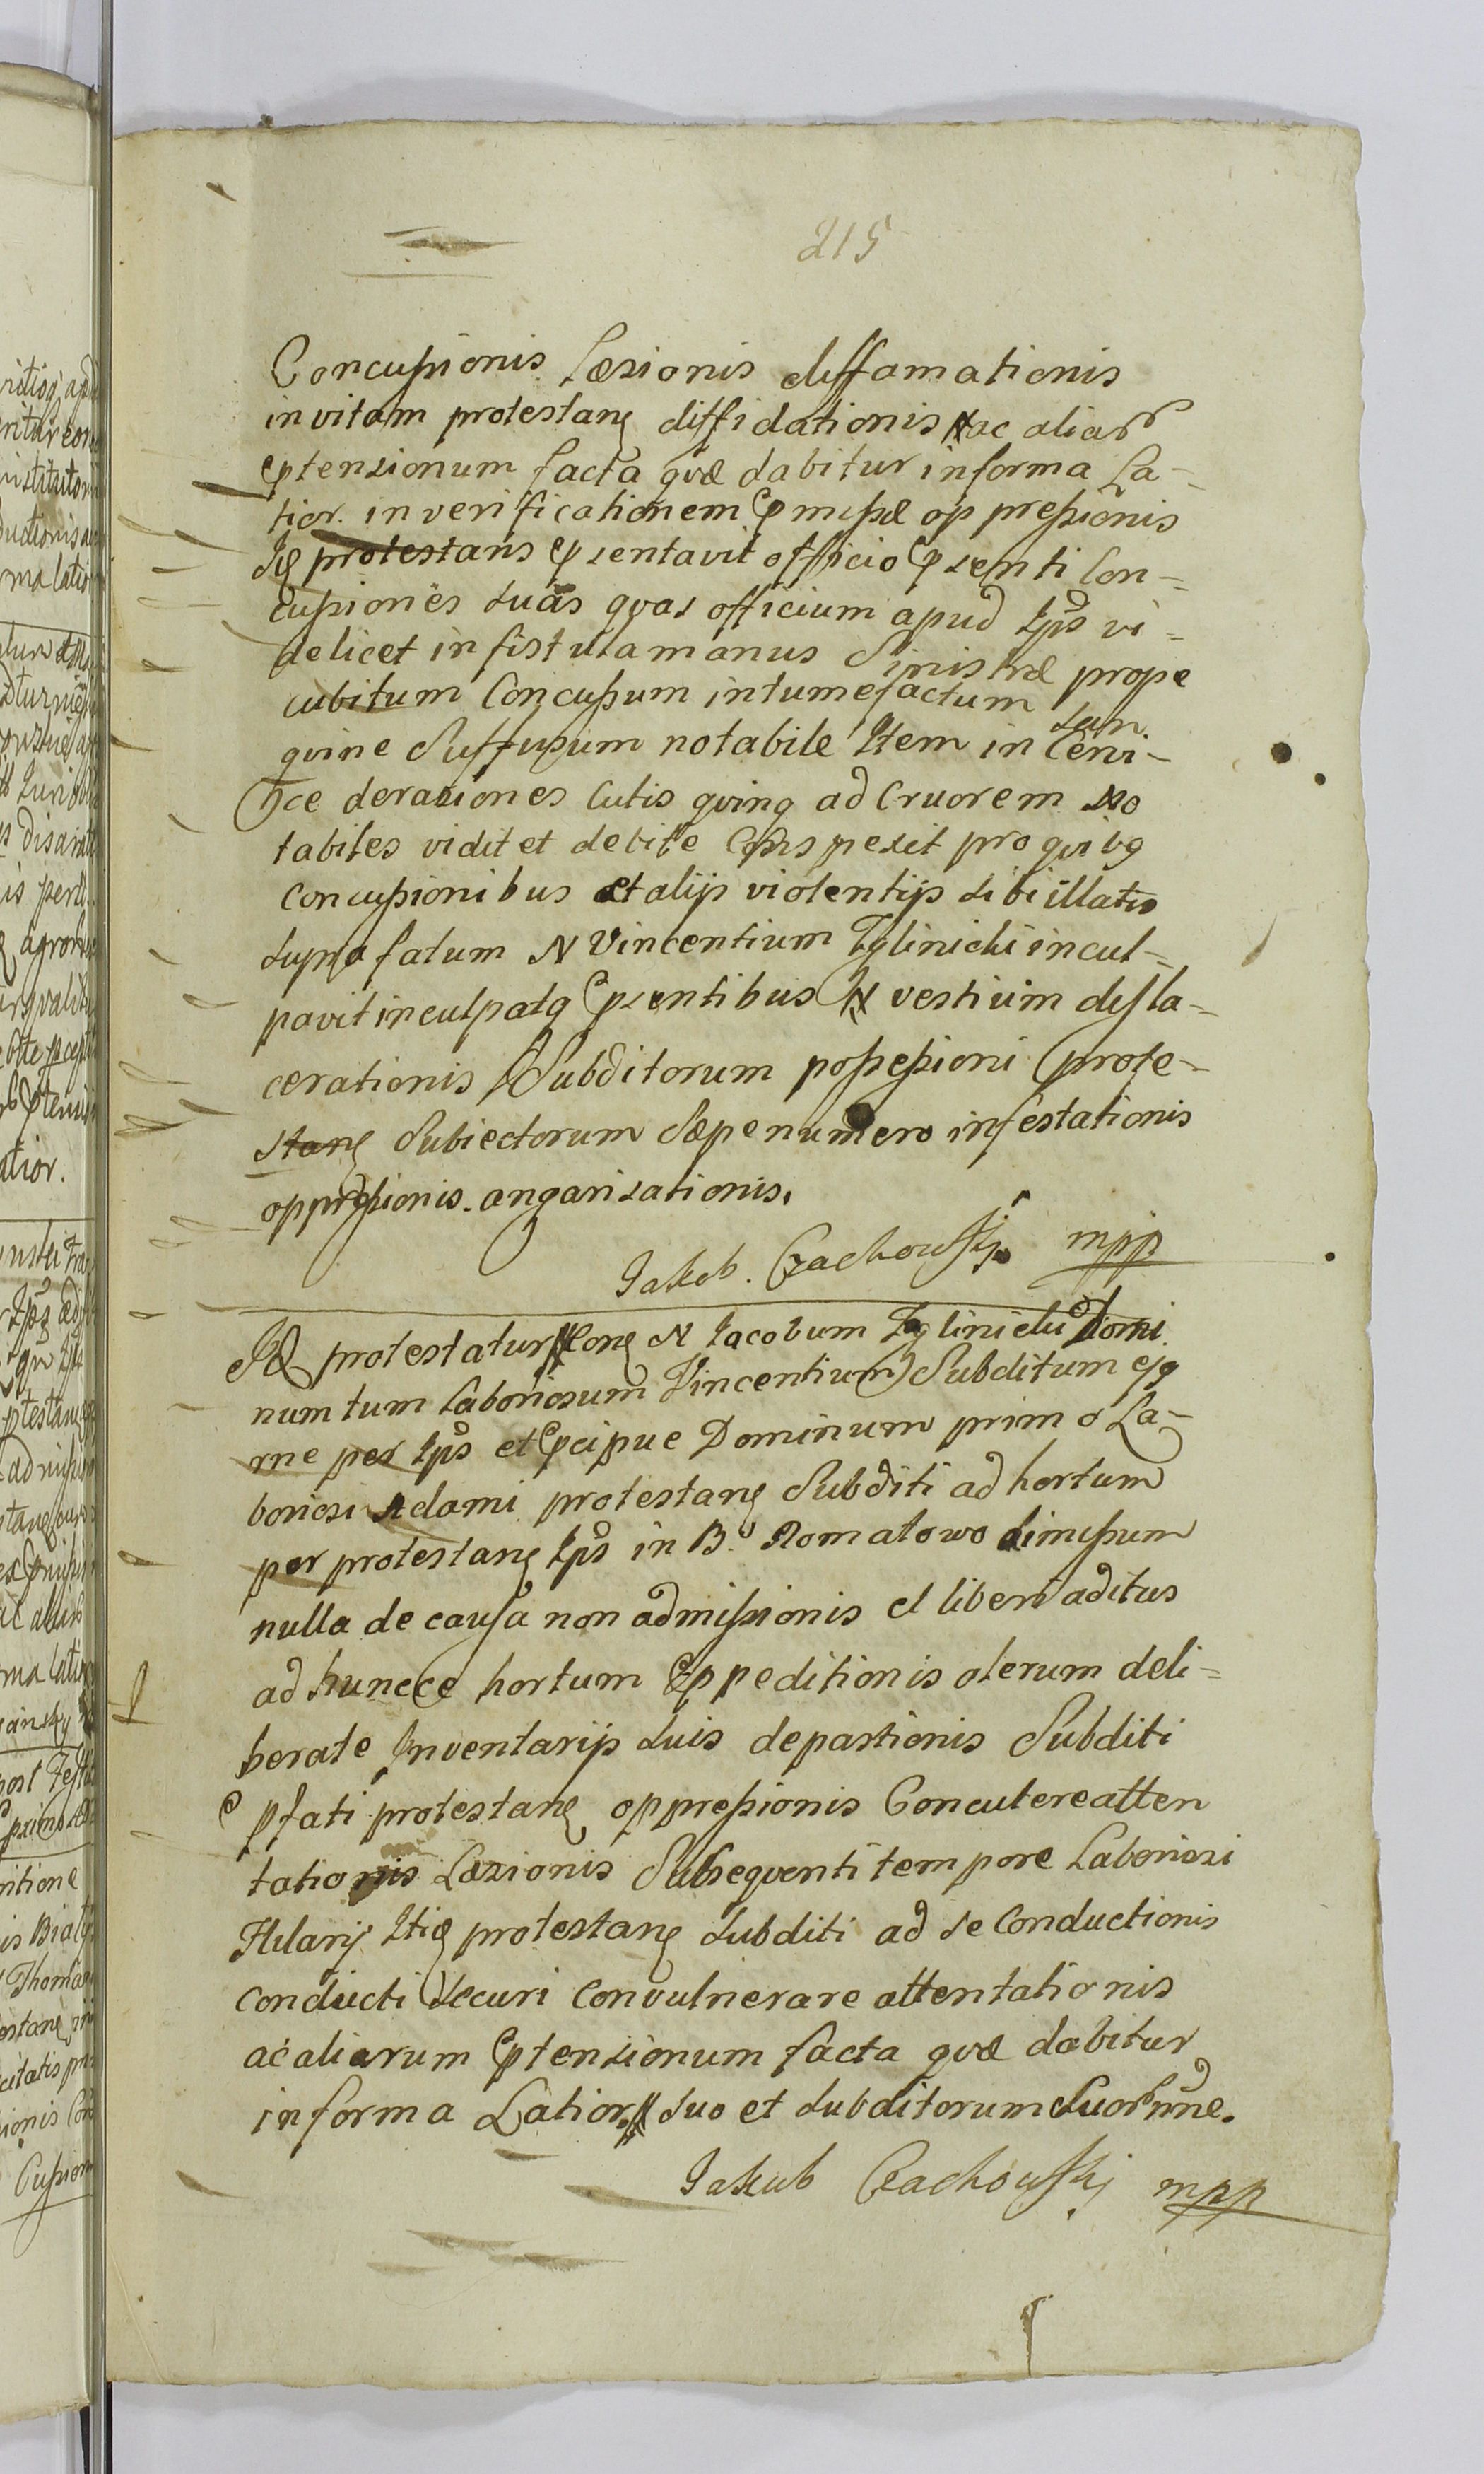 215
Concussionis Læsionis diffamationis
in vitam protestan diffidationis ac aliar
ptensionum facta quæ dabitur in forma La-
tior. in verificationem pmissæ oppressionis
Id protestans psentavit officio psenti Con-
cussiones suas quas officium apud Ips vi-
delicet in fistula manus Sinistræ prope
cubitum Concussum intumefactum San
guine Suffusum notabile Item in Cervi-
ce derasiones Cutis quinq ad Cruorem No
tabiles vidit et debite Conspexit pro quibq
Concussionibus et alijs violentijs sibi illatis
supra fatum N Vincentium Tglinicki incul-
pavit inculpatq psentibus N vestium disla-
cerationis Subditorum possessioni prote-
stan Subiectorum Sæpenumero infestationis
oppressionis. angarisationis.
Jakub. Czachowskj mpp
Id protestatur Con N Jacobum Tglinicki Domi
num tum Laboriosum Vincentium Subditum ejq
ne per Ips et pcipue Dominum primo La-
boriosi Adami protestan Subditi ad hortum
per protestan Ips in B. Romatowo dimissum
nulla de causa non admissionis et liberi aditus
ad huncce hortum ppeditionis olerum deli-
berate Inventarijs suis depastionis Subditi
pfati protestan oppressionis Concutere atten
tationis Læsionis Subsequenti tempore Laboriosi
Hilarij Itid protestan subditi ad se Conductionis
conducti Securi Convulnerare attentationis
ac aliarum ptensionum facta quæ dabitur
in forma Latior. suo et subditorum Suor nne.
Jakub Czachowskj mpp